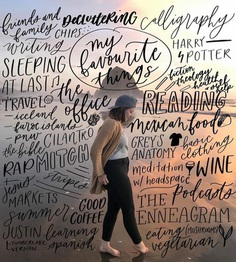 friends and
family
Decluttering
CHIPS
calligraphy
writing
my
favourite
things
HARRY
POTTER
SLEEPING
AT LAST
TRAVEL
the office
READING
iceland
faroe islands
mexican food
the bible
CILANTRO
GREYS
ANATOMY
basic
clothing
RAP
MDTCH
meditation
w/ headspace
WINE
stripes
Jesus
The Podcasts
MARKETS
GOOD
COFFEE
ENNEAGRAM
summer
JUSTIN
TIMBERLAKE
learning
spanish
eating
mushrooms
vegetarian